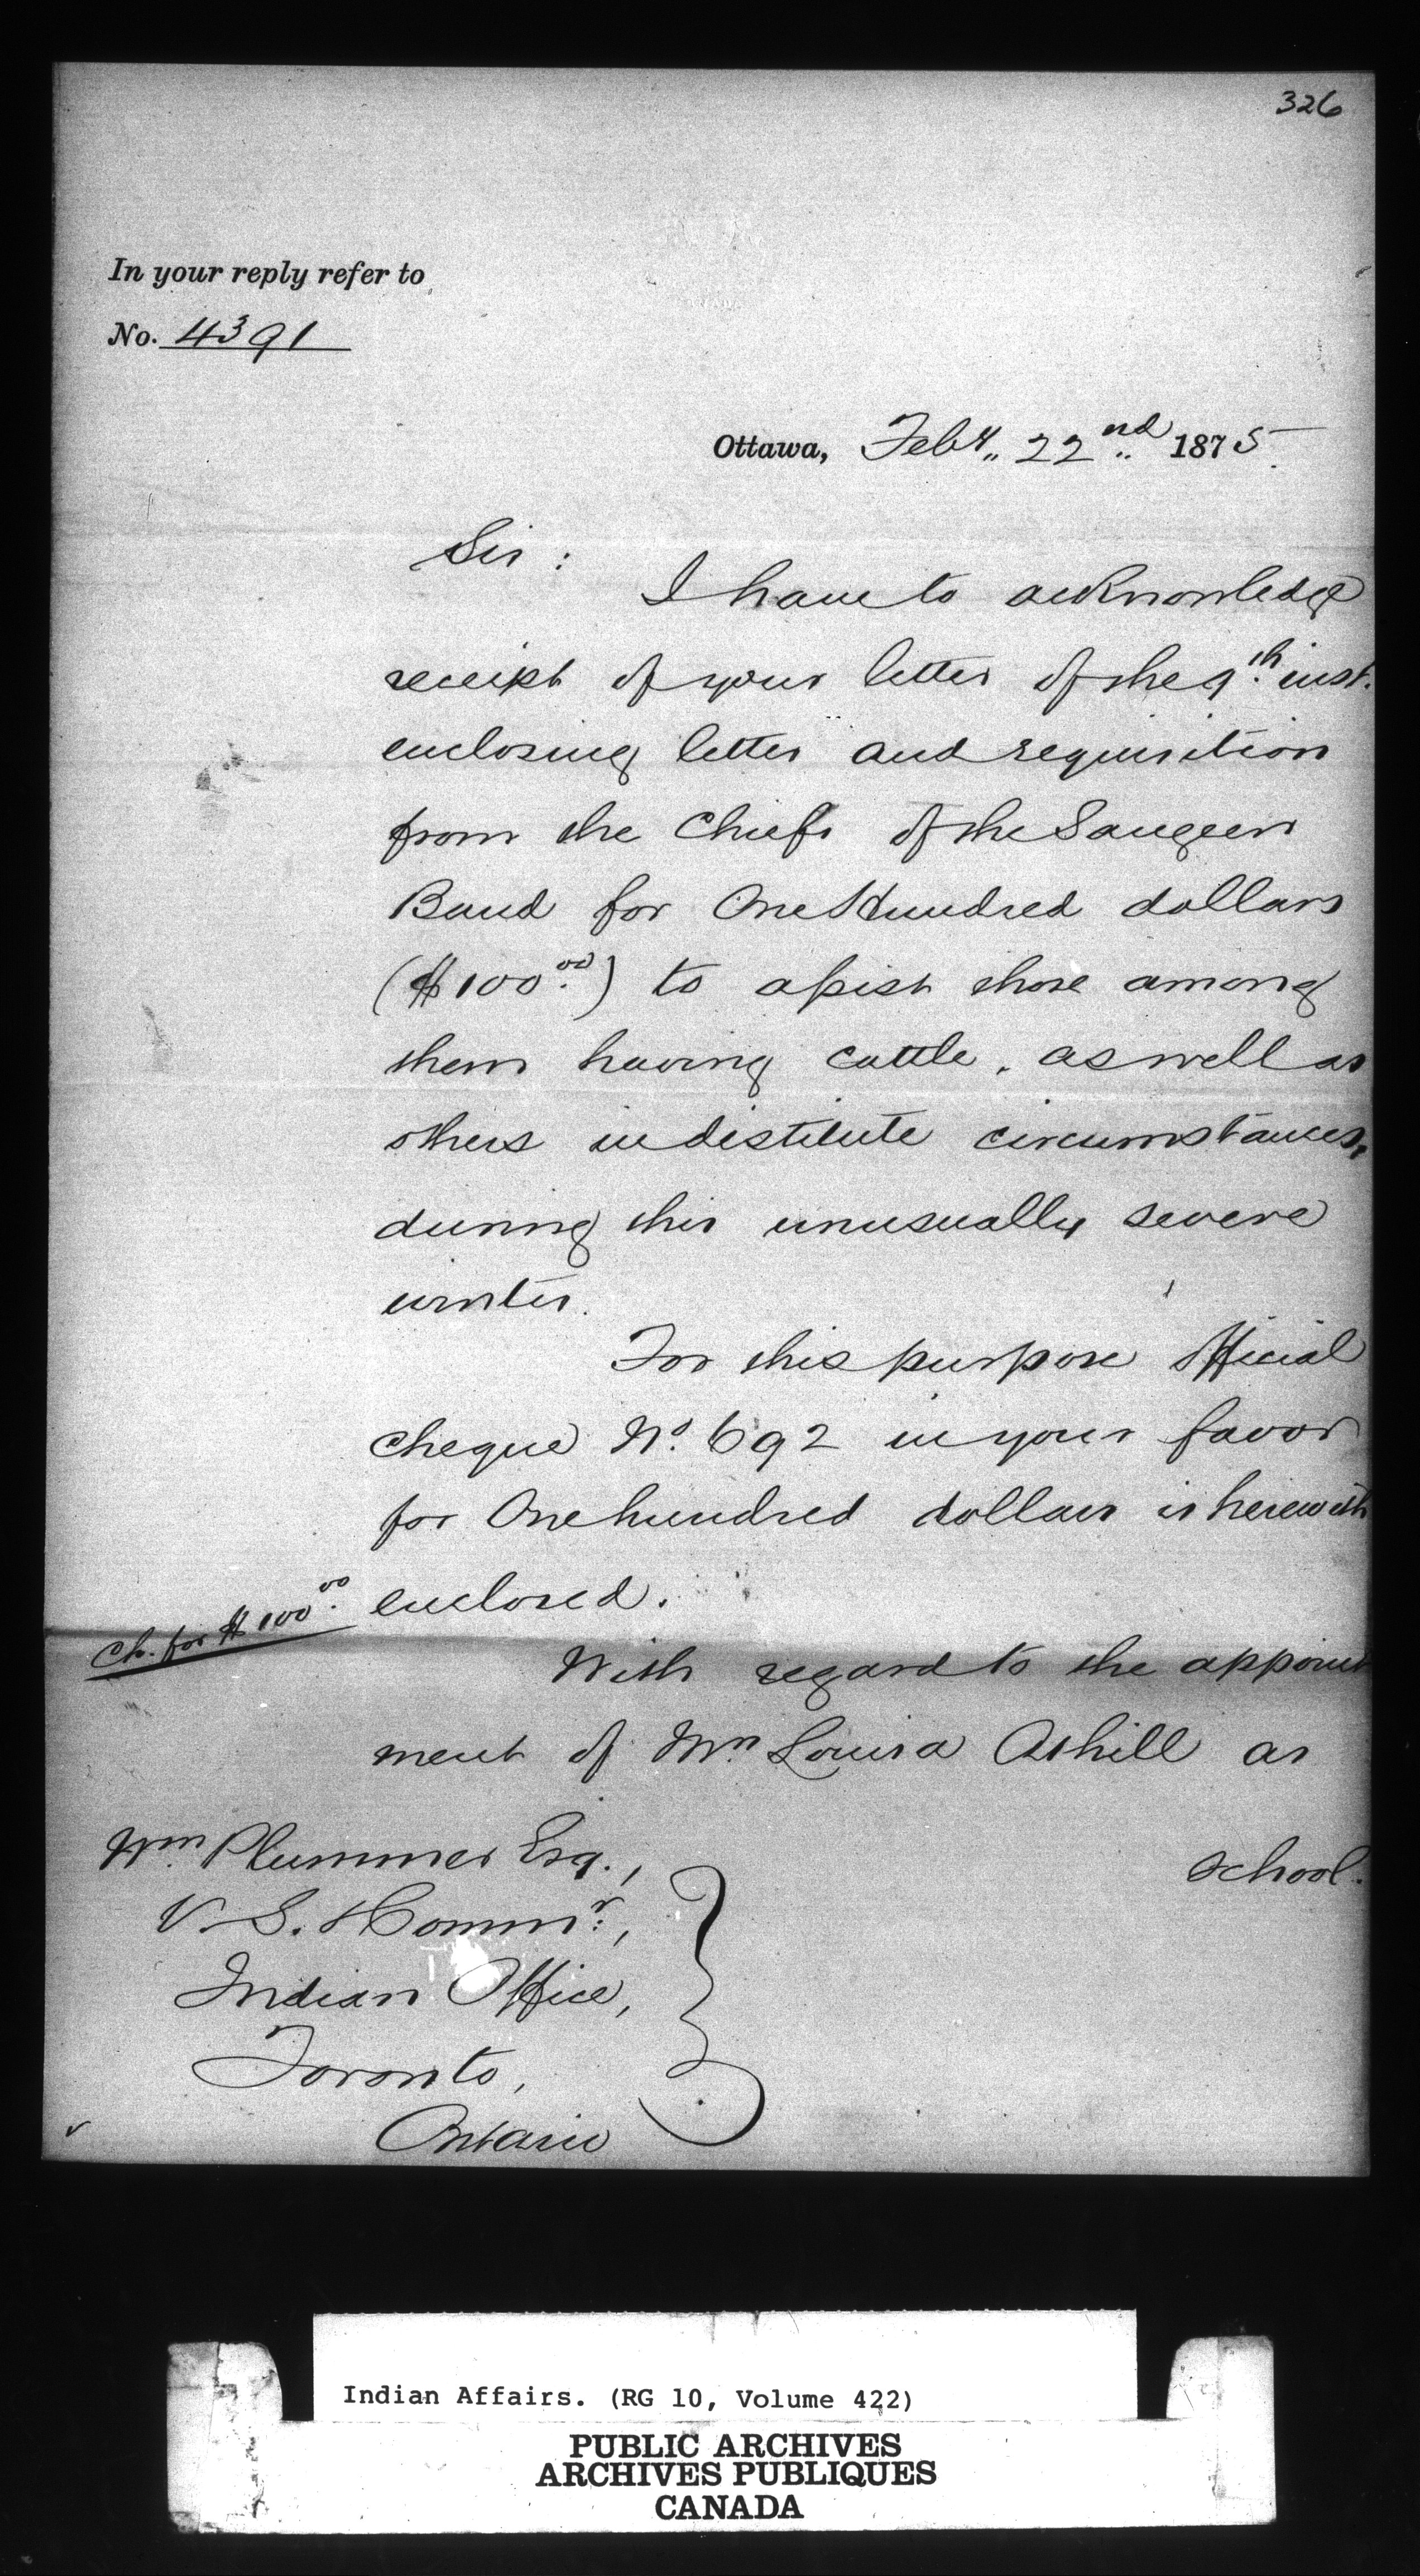 326
In your reply refer to
No. 4391
Ottawa, Feby. 22nd 1875.
Sir:
I have to acknowledge
receipt of your letter of the 9th inst.
enclosing letter and requisition
from the Chiefs of the Saugeen
Band for One Hundred dollars
($100.00) to assist those among
them having cattle, as well as
others in destitute circumstances,
during this unusually severe
winter.
For this purpose official
cheque No. 692 in your favor
for One hundred dollars is herewith
enclosed.
Ch. for $100.00
With regard to the appoint
ment of Mrs Louisa Ashill as
school.
Wm. Plummer Esq.,
V. S. & Commr.,
Indian Office,
Toronto,
Ontario
Indian Affairs. (RG 10, Volume 422)
PUBLIC ARCHIVES
ARCHIVES PUBLIQUES
CANADA